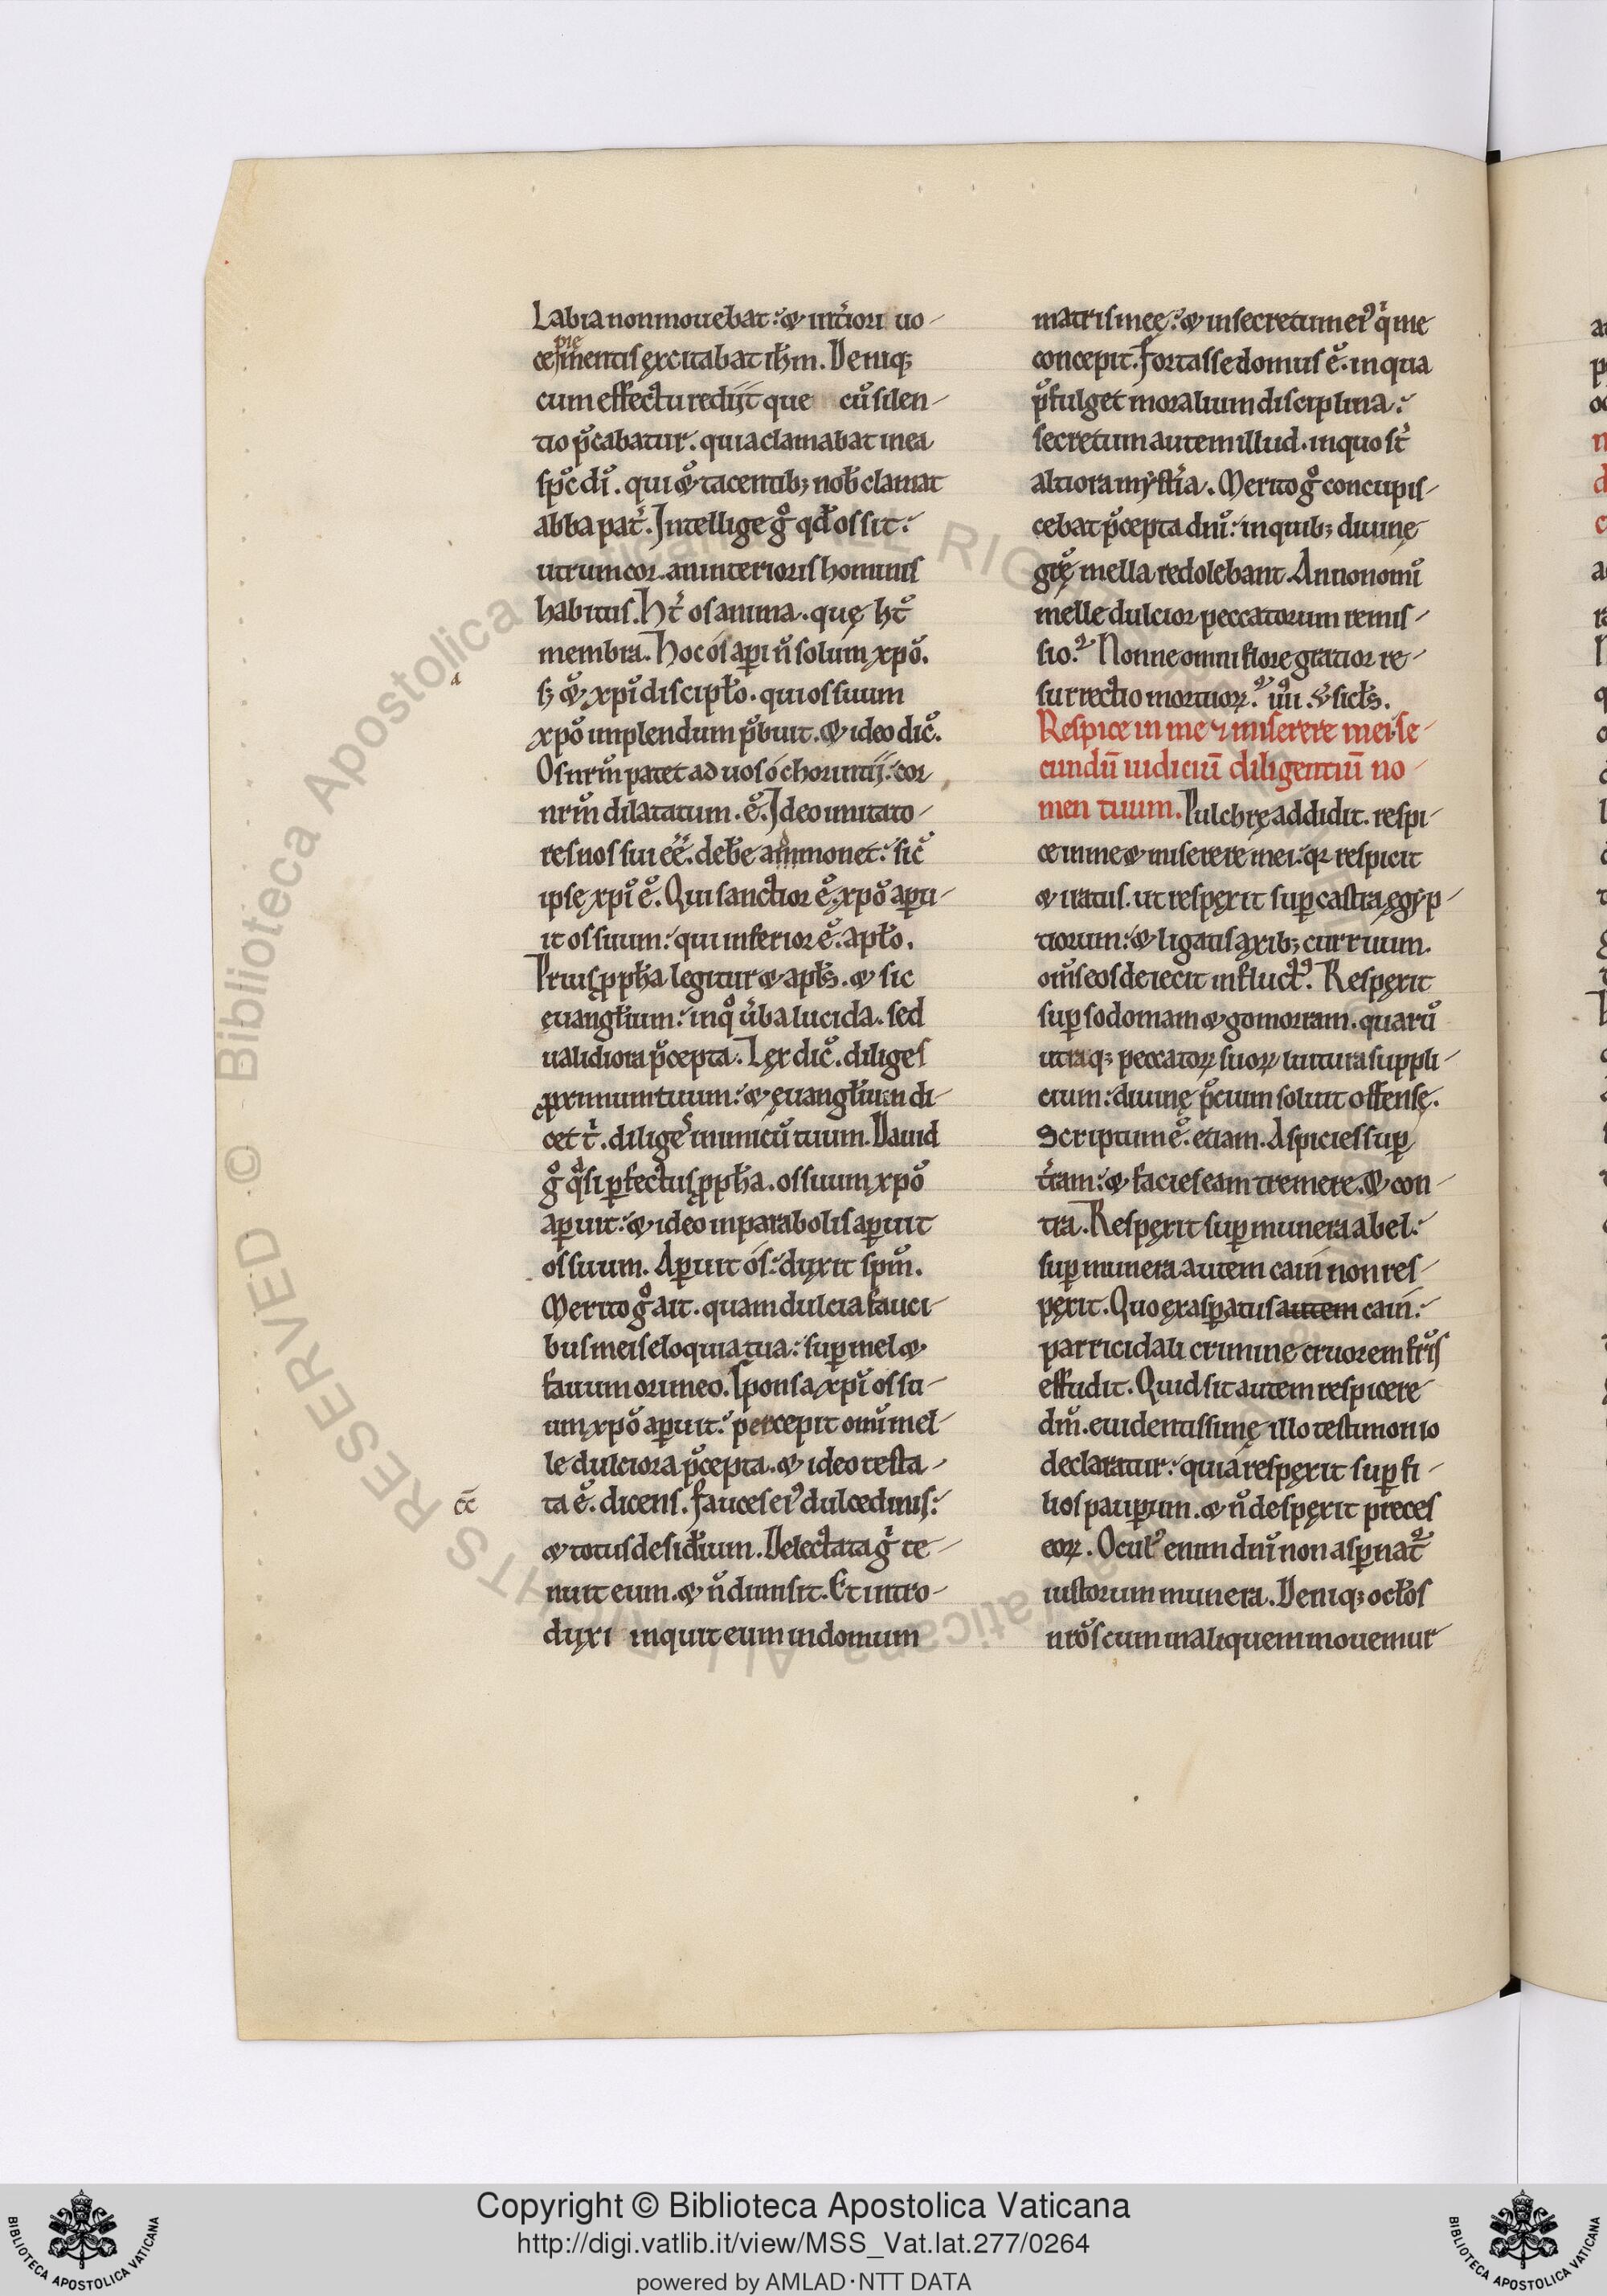 Labia non mouebat: & int̾iori uo-
ce pie mentis ęxcitabat ih̅m. Deniq;
cum effectu redijt que cu̅ silen-
tio p̅cabatur. quia clamabat in ea
sp̅c di̅. qui & tacentib; nob̅ clamat
abba pat̾. Intellige gͦ qd̅ os sit:
utrum cor. an interioris hominis
habitus. Ht̾ os anima. quę ht̅
membra. Hoc ós aꝑi n̅ solum xp̅o.
s; & xp̅i discipl̅o. qui os suum
xp̅o implendum p̅buit. & ideo dic̅.
Os nr̅m patet ad uos ó chorintij: cor
nr̅m dilatatum. e̅. Ideo imitato-
res uos sui ee̅. deb̅e ammonet: sic̅
ipse xp̅i e̅. Qui sanctior e̅. xp̅o aꝑu-
it os suum: qui inferior e̅. apl̅o.
Prius ꝓph̅a legitur & apl̅s. & sic
ęuangl̅ium: in qͦ u̾ba lucida. sed
ualidiora p̅cepta. Lęx dic̅. diliges
ꝓximum tuum: & ęuangl̅ium di-
cet t̾. dilige̾ inimicu̅ tuum. Dauid
gͦ qͣsi ꝑfectus ꝓph̅a. os suum xp̅o
aꝑuit: & ideo in parabolis aꝑuit
os suum. Aꝑuit ós: dyxit sp̅m.
Merito gͦ ait. quam dulcia fauci-
bus meis eloquia tua: suꝑ mel &
fauum ori meo. Sponsa xp̅i os su-
um xp̅o aꝑuit: percepit omi̅ mel-
le dulciora p̅cepta. & ideo testa-
ta e̅. dicens. Fauces eiꝰ dulcedinis:
cc̅
& totus desid̅ium. Delectata gͥ te-
nuit eum. & n̅ dimisit. Et intro-
dyxi inquit eum in domum
matris męę: & in secretum eiꝰ q̾ me
concepit. Fortasse domus e̅. in qua
p̅fulget moralium disciplina:
secretum autem illud. in quo st̾
altiora myst̾ia. Merito gͦ concupis-
cebat p̅cepta dni̅: in quib; diuinę
gr̅ę mella redolebant. An non omi̅
melle dulcior peccatorum remis-
sio? Nonne omni flore gratior re-
surrectio mortuoꝝ? iiii. v̾sicl̅s.
Respice in me ⁊ miserere mei. se-
cundu̅ iudiciu̅ diligentiu̅ no-
men tuum. Pulchrę addidit. respi-
ce in me & miserere mei: qꝛ respicit
& iratus. ut respęxit suꝑ castra ęgyp-
tiorum: & ligatis ąxib; curruum.
om̅s eos deiecit in fluctꝰ. Respęxit
suꝑ sodomam & gomorram. quaru̅
utraq; peccatoꝝ suoꝝ luitura suppli-
cium: diuinę p̅cium soluit offensę.
Scriptum e̅. etiam. Aspicies suꝑ
t̾ram: & facies eam tremere. & con-
tra. Respęxit suꝑ munera abel:
suꝑ munera autem cain non res-
pęxit. Quo ęxasꝑatus autem cain:
parricidali crimine cruorem fr̅is
effudit. Quid sit autem respicere
dm̅. euidentissimę illo testimonio
declaratur: quia respęxit suꝑ fi-
lios pauꝑum. & n̅ despęxit preces
eoꝝ. Oculꝰ enim dni̅ non asꝑnat̾
iustorum munera. Deniq; ocl̅os
nr̅os cum in aliquem mouemur
Copyright © Biblioteca Apostolica Vaticana
http://digi.vatlib.it/view/MSS_Vat.lat.277/0264
powered by AMLAD·NTT DATA